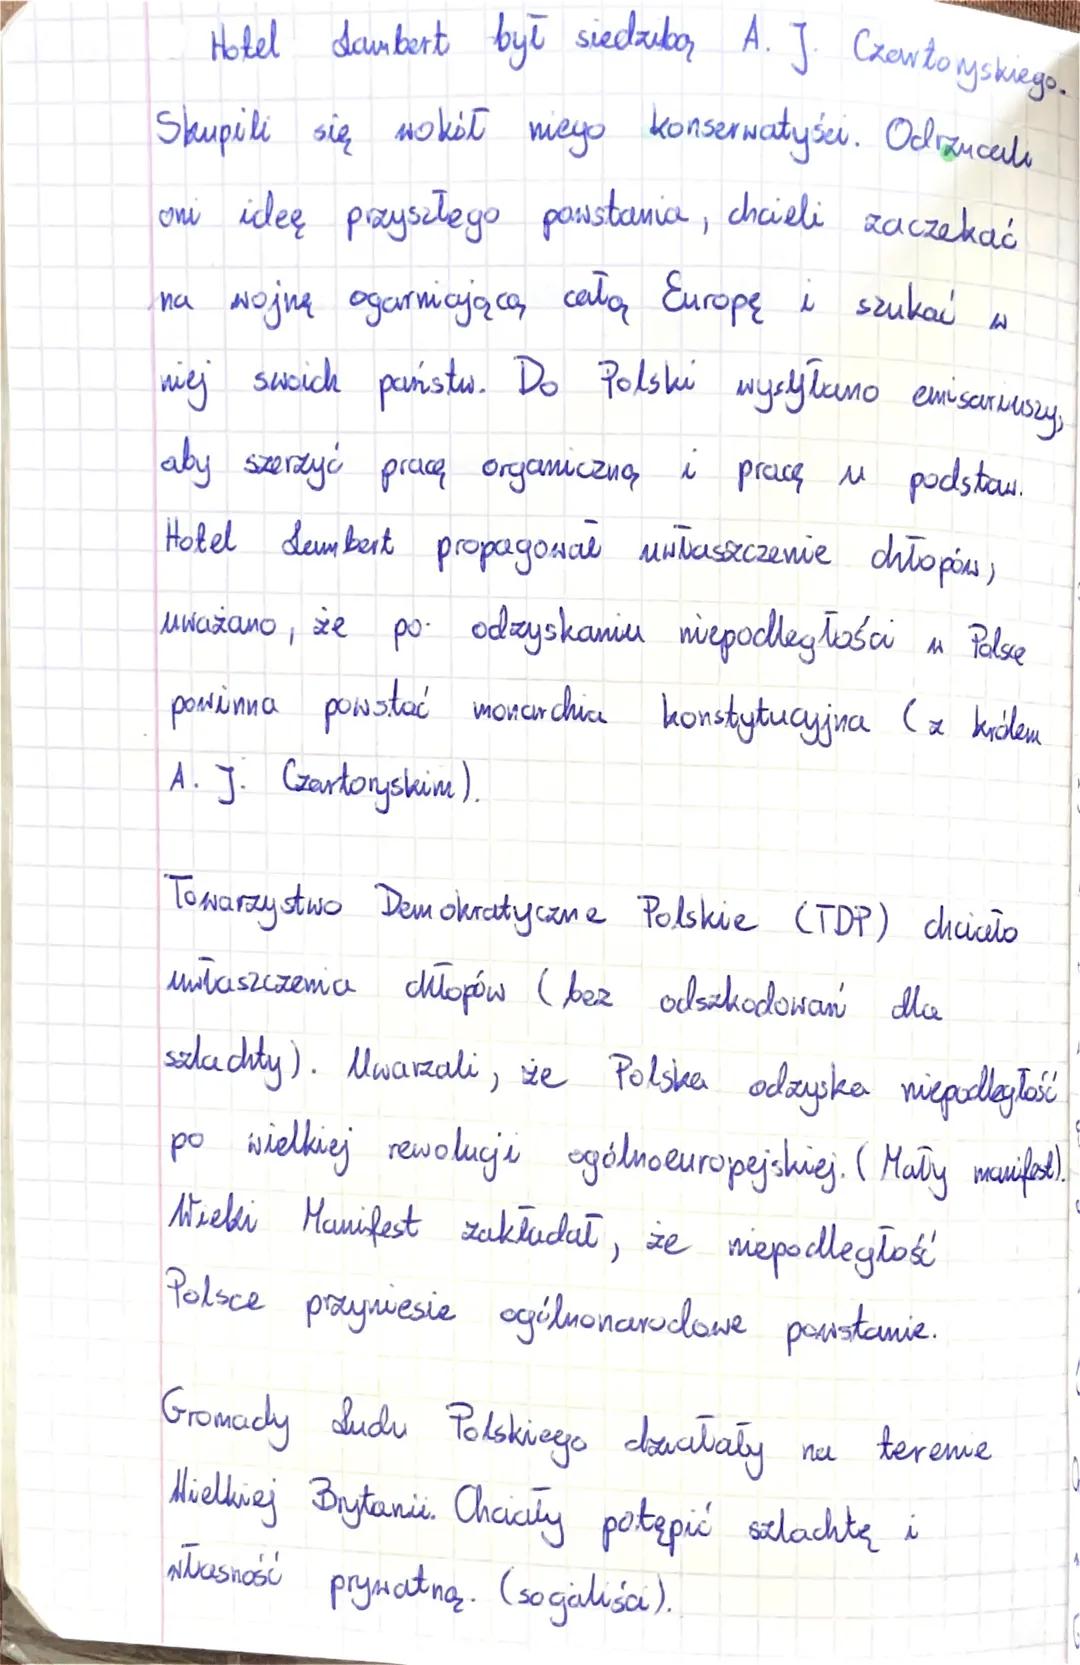 Hotel Lambert był siedzibą A. J. Czartoryskiego.
Skupili się wokół niego konserwatyści. Odrzucali
oni ideę przyszłego powstania, chcieli zaczekać
na wojnę ogarniającą całą Europę i szukać w
niej swoich państw. Do Polski wysyłano emisariuszy,
aby szerzyć pracę organiczną i pracę u podstaw.
Hotel Lambert propagował uwłaszczenie chłopów,
uważano, że po odzyskaniu niepodległości w Polsce
powinna powstać monarchia konstytucyjna (z królem
A. J. Czartoryskim).
Towarzystwo Demokratyczne Polskie (TDP) chciało
uwłaszczenia chłopów (bez odszkodowań dla
szlachty). Uwarzali, że Polska odzyska niepodległość
po wielkiej rewolucji ogólnoeuropejskiej. (Mały manifest).
Wielki Manifest zakładał, że niepodległość
Polsce przyniesie ogólnonarodowe powstanie.
Gromady Ludu Polskiego działały na terenie
Wielkiej Brytanii. Chciały potępić szlachtę i
własność prywatną. (socjaliści).